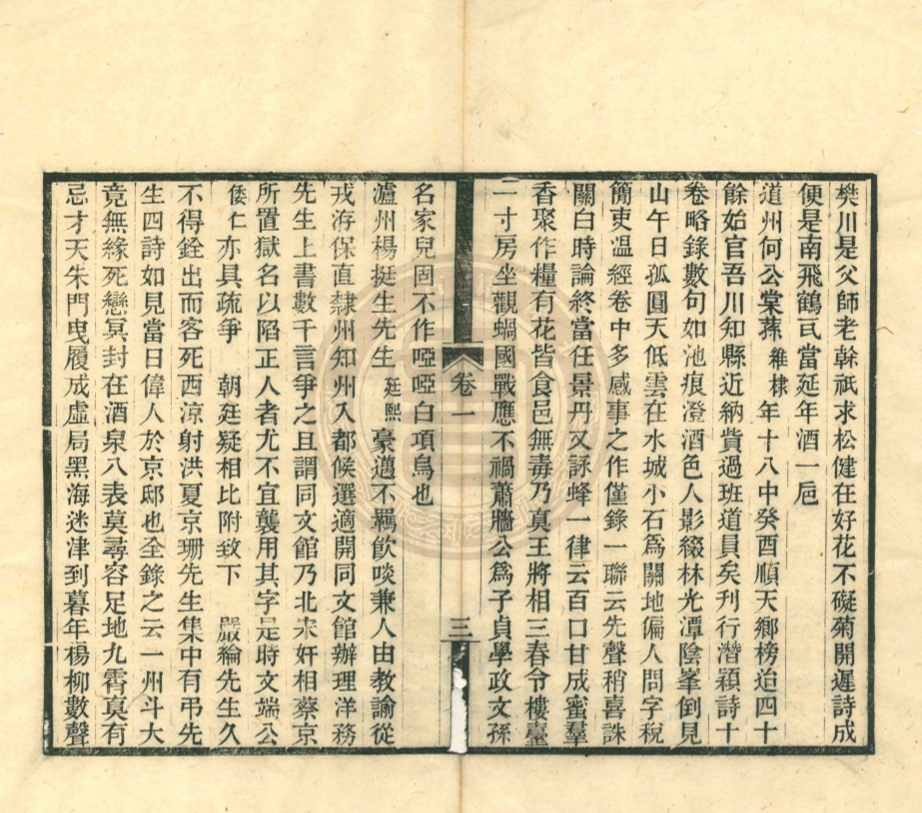 樊川是父師老幹祇求松健在好花不礙菊開遲詩成
便是南飛鶴瓦當延年酒一巵
道州何公棠蓀維棣年十八中癸酉順天鄉榜迨四十
餘始官吾川知縣近納貲過班道員矣刋行潛穎詩十
卷略錄數句如池痕澄酒色人影綴林光潭陰峯倒見
山午日孤圓天低雲在水城小石爲關地偏人問字稅
簡吏溫經卷中多感事之作僅錄一聯云先聲稍喜誅
關白時論終當任景丹又詠蜂一律云百口甘成蜜羣
香聚作糧有花皆食邑無毒乃眞王將相三春令樓臺
二寸房坐觀蝸國戰應不禍蕭牆公爲子貞學政文孫
卷一
三
名家兒固不作啞啞白項烏也
瀘州楊挺生先生廷熙豪邁不羈飮啖兼人由教諭從
戎洊保直隸州知州入都候選適開同文館辦理洋務
先生上書數千言爭之且謂同文館乃北宋奸相蔡京
所置獄名以陷正人者尤不宜襲用其字是時文端公
倭仁亦具疏爭 朝廷疑相比附致下 嚴綸先生久
不得銓出而客死西涼射洪夏京珊先生集中有弔先
生四詩如見當日偉人於京邸也全錄之云一州斗大
竟無緣死戀冥封在酒泉八表莫尋容足地九霄眞有
忌才天朱門曳履成虛局黑海迷津到暮年楊柳數聲